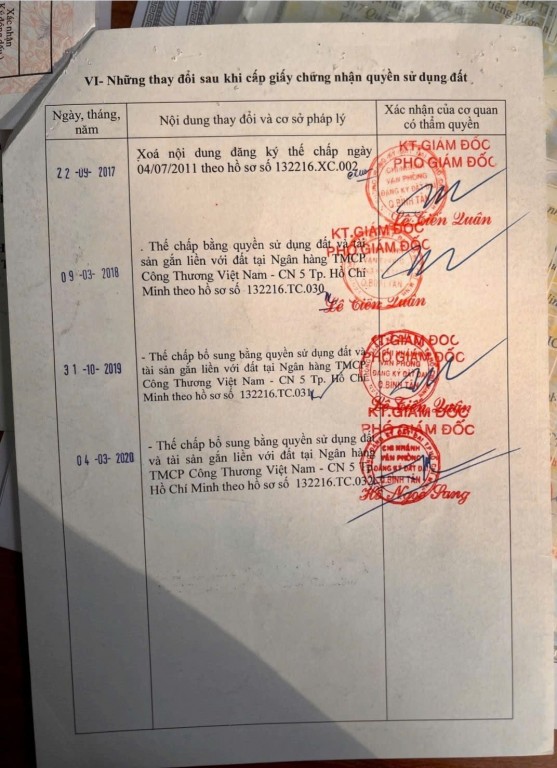 Xác nhận
VI- Những thay đổi sau khi cấp giấy chứng nhận quyền sử dụng đất
Ngày, tháng, năm
Nội dung thay đổi và cơ sở pháp lý
Xác nhận của cơ quan có thẩm quyền
22-09-2017
Xoá nội dung đăng ký thế chấp ngày
04/07/2011 theo hồ sơ số 132216.XC.002
KT.GIÁM ĐỐC
PHÓ GIÁM ĐỐC
CHI NHÁNH
VĂN PHÒNG
ĐĂNG KÝ ĐẤT ĐAI
Q.BÌNH TÂN
Lê Tiến Quân
09-03-2018
- Thế chấp bằng quyền sử dụng đất và tài
sản gắn liền với đất tại Ngân hàng TMCP
Công Thương Việt Nam - CN 5 Tp. Hồ Chí
Minh theo hồ sơ số 132216.TC.030
KT.GIÁM ĐỐC
PHÓ GIÁM ĐỐC
Lê Tiến Quân
31-10-2019
- Thế chấp bổ sung bằng quyền sử dụng đất và
tài sản gắn liền với đất tại Ngân hàng TMCP
Công Thương Việt Nam - CN 5 Tp. Hồ Chí
Minh theo hồ sơ số 132216.TC.031
KT.GIÁM ĐỐC
PHÓ GIÁM ĐỐC
VĂN PHÒNG
ĐĂNG KÝ ĐẤT ĐAI
Q.BÌNH TÂN
Lê Tiến Quân
04-03-2020
- Thế chấp bổ sung bằng quyền sử dụng đất
và tài sản gắn liền với đất tại Ngân hàng
TMCP Công Thương Việt Nam - CN 5 Tp.
Hồ Chí Minh theo hồ sơ số 132216.TC.032
KT.GIÁM ĐỐC
PHÓ GIÁM ĐỐC
CHI NHÁNH
VĂN PHÒNG
ĐĂNG KÝ ĐẤT ĐAI
Q.BÌNH TÂN
Hồ Ngọc Sang